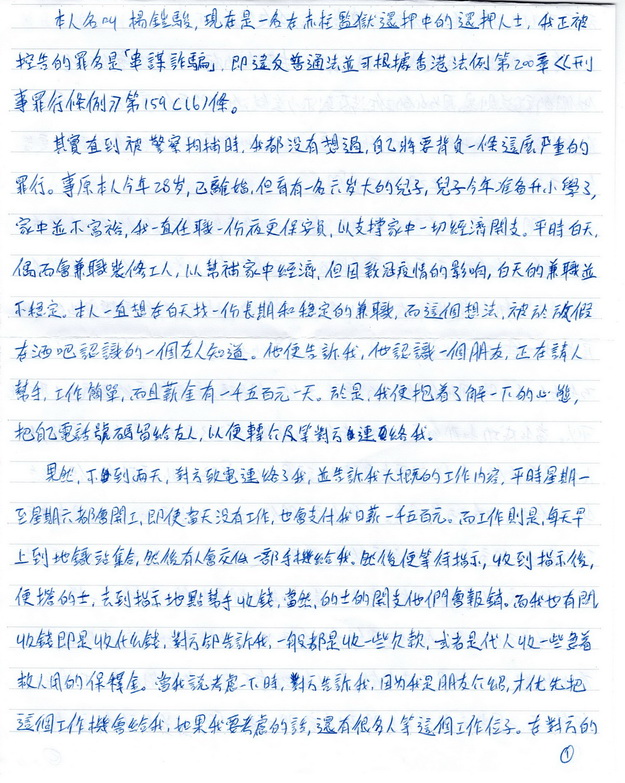 本人名叫 楊鎧駿,現在是一名在赤柱監獄還押中的還押人士,我正被
控告的罪名是「串謀詐騙」,即違反普通法並可根據香港法例第200章《刑
事罪行條例》第159C(6)條。
其實直到被警察拘捕時,我都沒有想過,自己將要背負一條這麼严重的
罪行。事原本人今年28岁,已離婚,但育有一名六岁大的兒子,兒子今年准备升小學了,
家中並不富裕,我一直任職一份夜更保安員,以支撑家中一切經濟開支。平時白天,
偶而會兼職裝修工人,以幫補家中經濟,但因新冠疫情的影响,白天的兼職並
不穩定。本人一直想在白天找一份長期和穩定的兼職,而這個想法,被於放假
在酒吧認識的一個友人知道。他便告訴我,他認識一個朋友,正在請人
幫手,工作簡單,而且薪金有一千五百元一天。於是,我便抱着了解一下的心態,
把自己電話號碼留給友人,以便轉介及等對方連絡我。
果然,不到兩天,對方致電連絡了我,並告訴我大概的工作内容,平時星期一
至星期六都會開工,即使當天沒有工作,也會支付我日薪一千五百元。而工作則是,每天早
上到地鐵站集合,然後有人會交低一部手機給我。然後便等待指示,收到指示後,
便搭的士,去到指示地點幫手收錢,當然,的士的開支他們會報銷。而我也有問
收錢即是收什么錢,對方却告訴我,一般都是收一些欠款,或者是代人收一些急着
救人用的保釋金。當我說考慮一下時,對方告訴我,因为我是朋友介紹,才优先把
這個工作機會給我,如果我要考慮的話,還有很多人等這個工作位子。在對方的
①